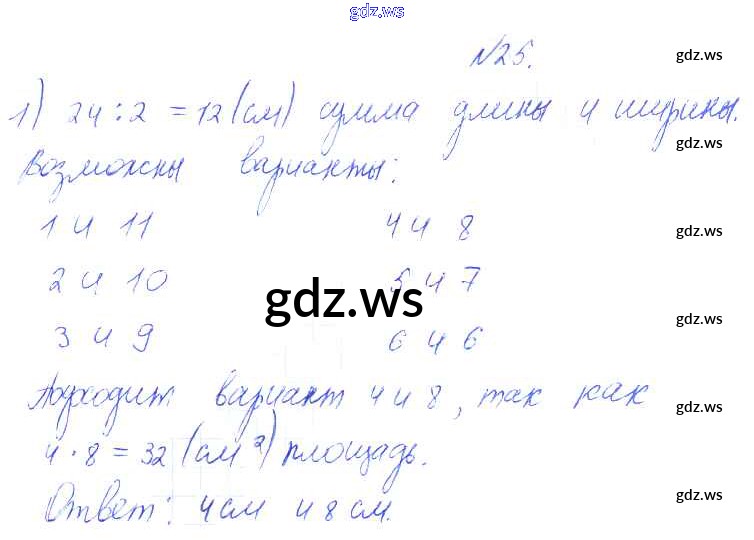 gdz.ws
№25.
gdz.ws
1) 24 : 2 = 12 (см) сумма длины и ширины.
gdz.ws
Возможны варианты:
1 и 11 4 и 8
gdz.ws
2 и 10 5 и 7
gdz.ws
3 и 9 6 и 6
gdz.ws
Подходит вариант 4 и 8, так как
gdz.ws
4 · 8 = 32 (см²) площадь.
Ответ: 4 см и 8 см.
gdz.ws